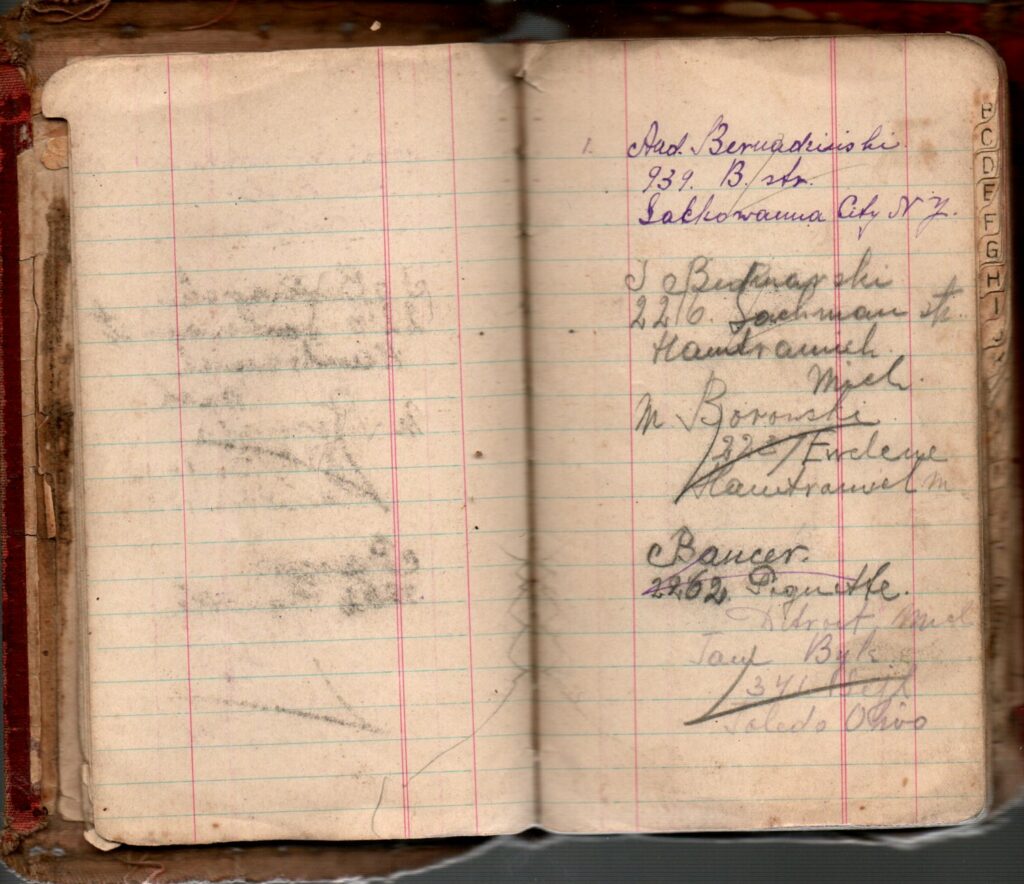 1. And. Bernadzinski
939. B. str.
Lackowanna City N Y.
J Bednarski
2216. Jachman str.
Hamtramck.
Mich.
M Borowski
222 Evelene
Hamtramck M
Bancer.
2262. Piquette.
Detroit Mich
Byk
341
Toledo Ohio
C
D
E
F
G
H
I